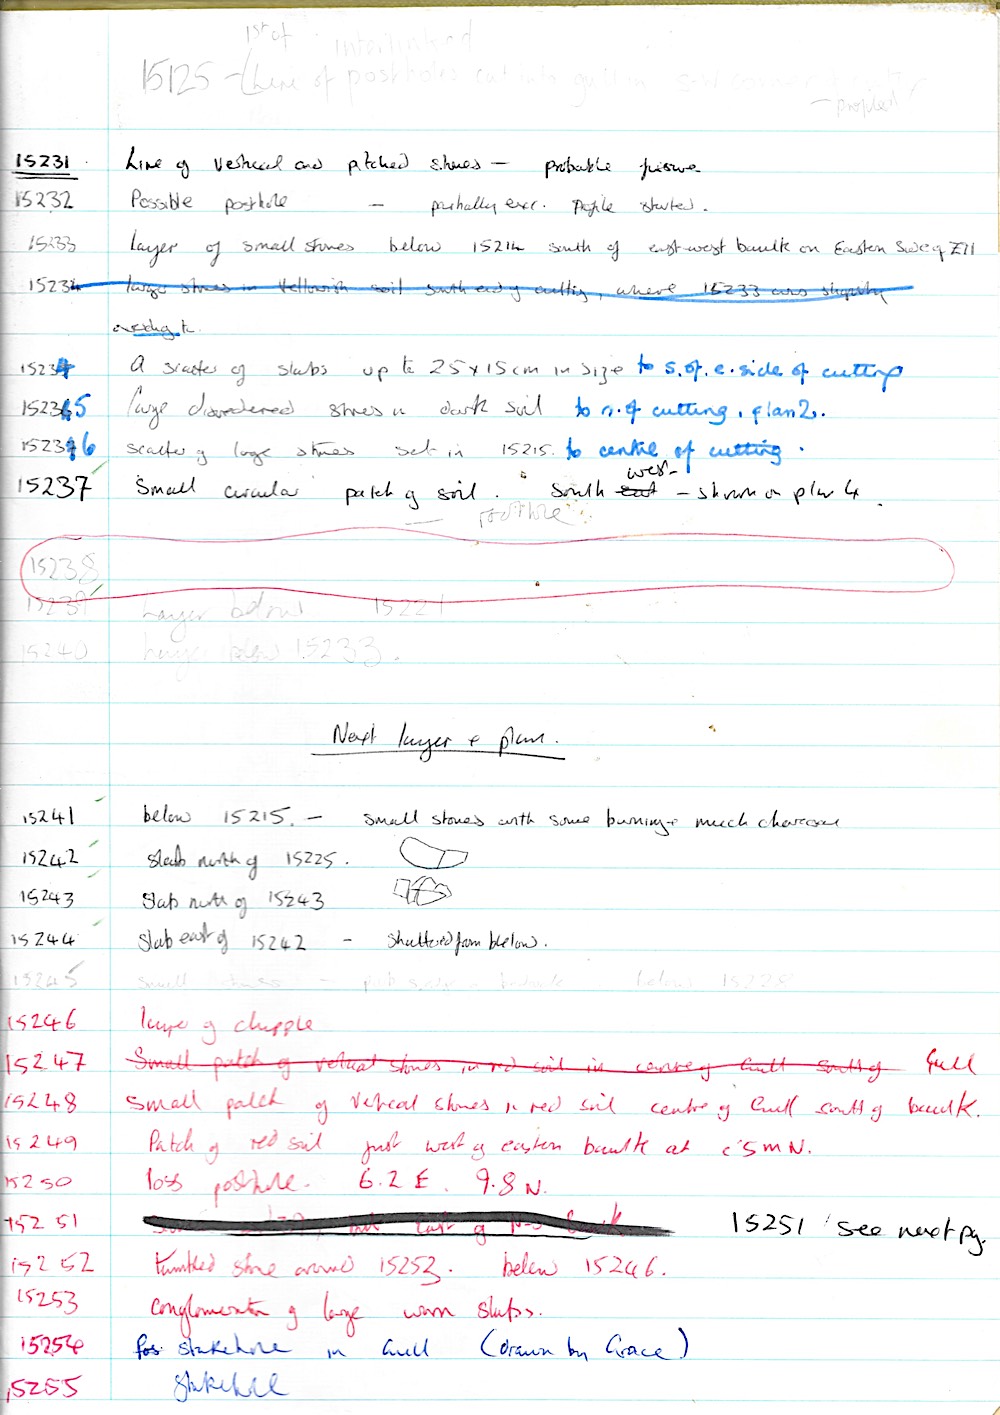 1st of interlinked
15125 - (Line of postholes cut into gull in
15231 Line of vertical and pitched stones - probable
15232 Possible posthole - partially exc. Profile started.
15233 layer of small stones below 15214 south of east-west baulk on Eastern Side of Z11
15234 large stones in Yellowish soil south end of cutting, where 15233 was slightly
overlying it.
15234 A scatter of slabs up to 25x15cm in size to s. of. e. side of cutting
15235 large disordered stones in dark soil to n. of cutting, plan 2.
15236 scatter of large stones set in 15215. to centre of cutting.
15237 Small circular patch of soil. South east west - shown on plan 4.
15238
15239 Layer below 15221
15240 Layer below 15233.
Next layer + plan.
15241 below 15215. - small stones with some burning + much charcoal
15242 slab north of 15225.
15243 slab north of 15243
15244 slab east of 15242 - shattered from below.
15245 small stones - below 15220
15246 layer of chipple
15247 Small patch of vertical stones in red soil in centre of Gull South of Gull
15248 Small patch of vertical stones in red soil centre of Gull south of baulk.
15249 Patch of red soil just west of eastern baulk at c 5m N.
15250 loss posthole. 6.2 E. 9.8 N.
15251 15251 see next pg.
15252 tumbled stone around 15253. below 15246.
15253 conglomeration of large worn slabs.
15254 pos stakehole in Gull (drawn by Grace)
15255 stakehole